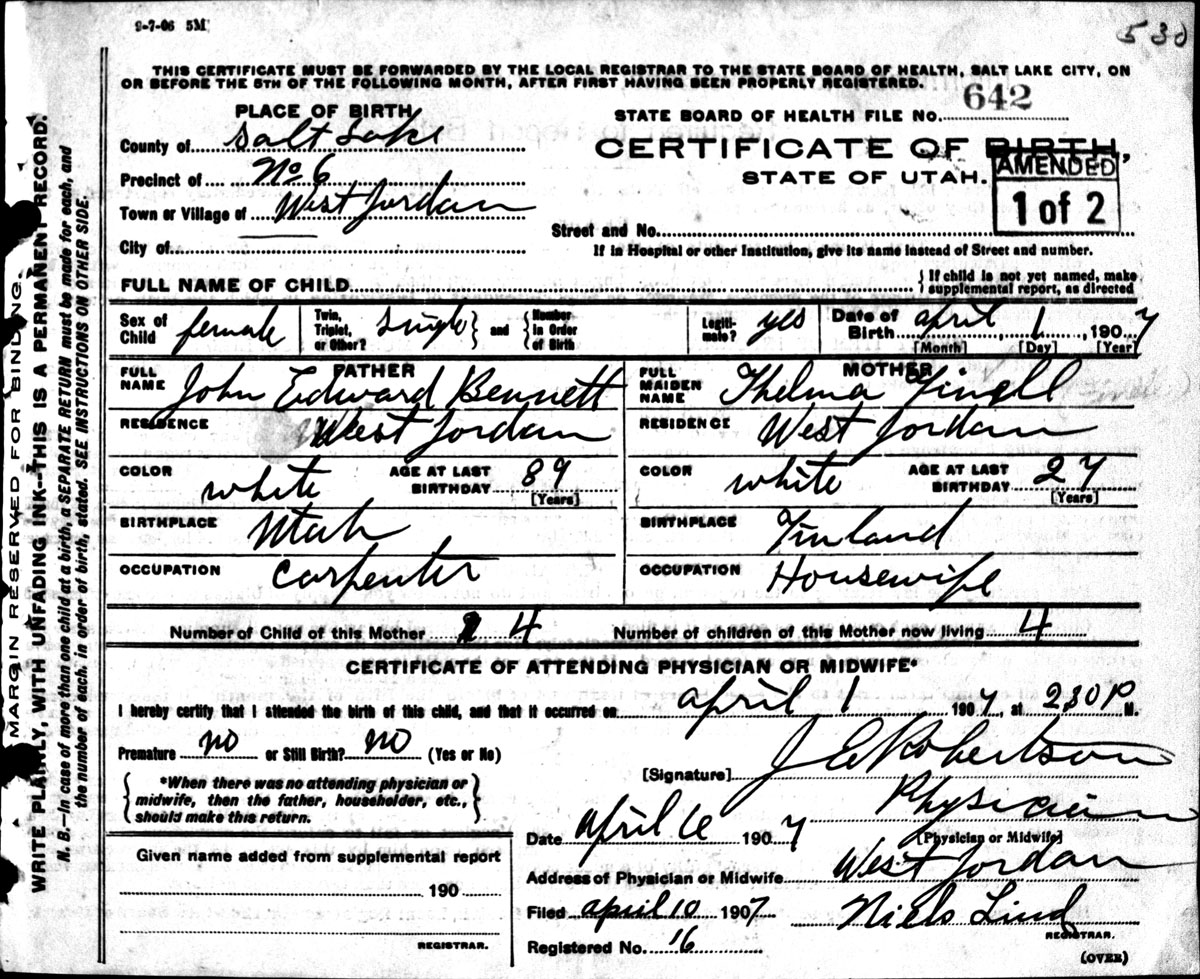 9-7-06 5M
530
THIS CERTIFICATE MUST BE FORWARDED BY THE LOCAL REGISTRAR TO THE STATE BOARD OF HEALTH, SALT LAKE CITY, ON
OR BEFORE THE 5TH OF THE FOLLOWING MONTH, AFTER FIRST HAVING BEEN PROPERLY REGISTERED.
PLACE OF BIRTH
County of Salt Lake
Precinct of No 6
Town or Village of West Jordan
City of
STATE BOARD OF HEALTH FILE NO. 642
CERTIFICATE OF BIRTH,
STATE OF UTAH.
AMENDED
1 of 2
Street and No.
If in Hospital or other Institution, give its name instead of Street and number.
FULL NAME OF CHILD
{ If child is not yet named, make
supplemental report, as directed
Sex of Child female
Twin, Triplet, or Other? Single } and { Number in Order of Birth
Legiti-mate? yes
Date of Birth april 1, 1907
[Month] [Day] [Year]
FATHER
FULL NAME John Edward Bennett
RESIDENCE West Jordan
COLOR white AGE AT LAST BIRTHDAY 39 [Years]
BIRTHPLACE Utah
OCCUPATION Carpenter
MOTHER
FULL MAIDEN NAME Thelma
RESIDENCE West Jordan
COLOR white AGE AT LAST BIRTHDAY 27 [Years]
BIRTHPLACE Finland
OCCUPATION Housewife
Number of Child of this Mother 4 Number of children of this Mother now living 4
CERTIFICATE OF ATTENDING PHYSICIAN OR MIDWIFE*
I hereby certify that I attended the birth of this child, and that it occurred on april 1 1907, at 2.30 P M.
Premature no or Still Birth? no (Yes or No)
{ *When there was no attending physician or
midwife, then the father, householder, etc.,
should make this return. }
[Signature] J E Robertson
Physician
[Physician or Midwife]
Date april 1907
Address of Physician or Midwife West Jordan
Filed april 10 1907 Niels Lind
REGISTRAR.
Registered No. 16
(OVER)
Given name added from supplemental report
190
REGISTRAR.
MARGIN RESERVED FOR BINDING.
WRITE PLAINLY, WITH UNFADING INK--THIS IS A PERMANENT RECORD.
N. B.—In case of more than one child at a birth, a SEPARATE RETURN must be made for each, and
the number of each, in order of birth, stated. SEE INSTRUCTIONS ON OTHER SIDE.